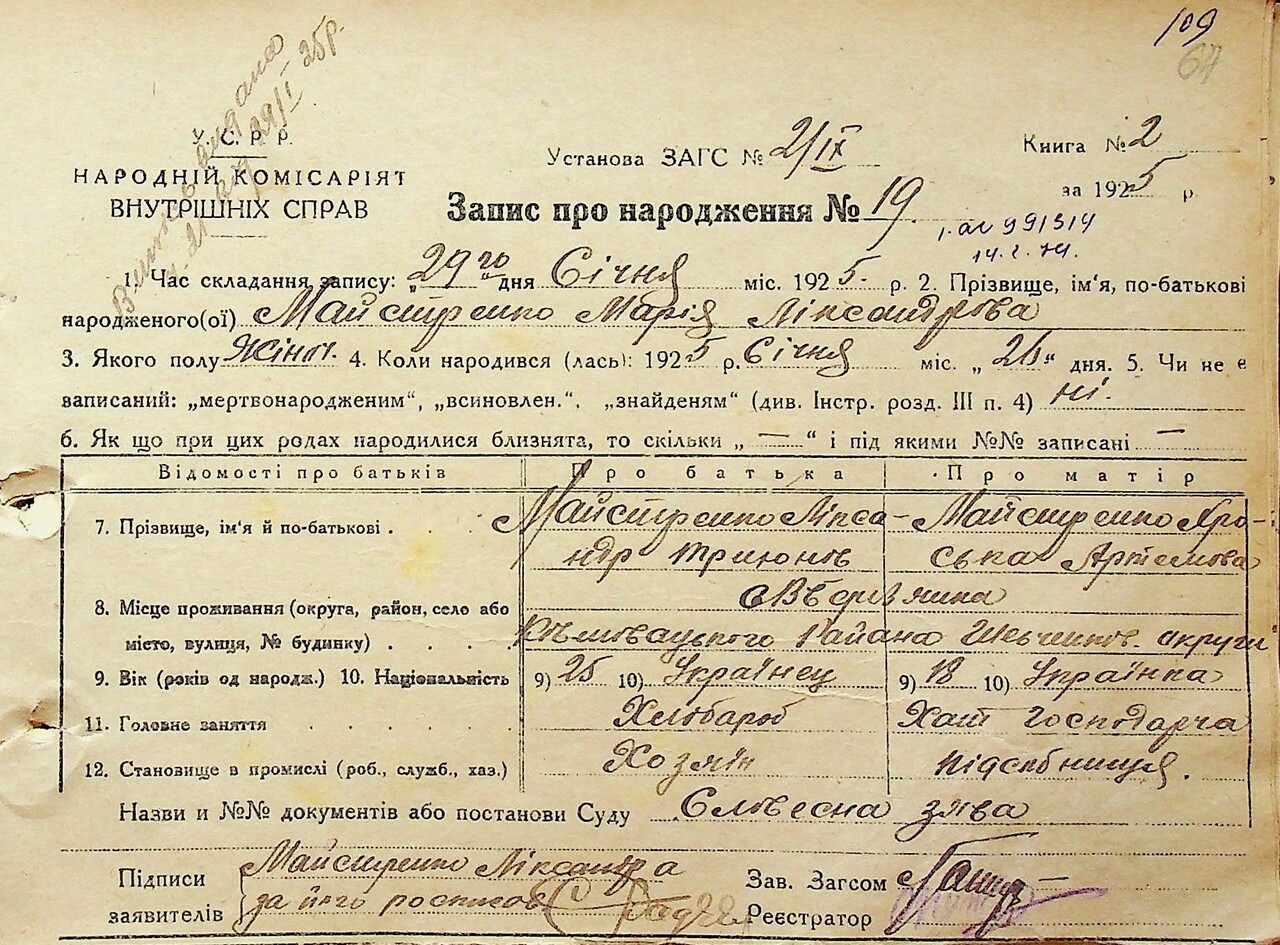 109
64
Витяг видана
29/I 25р.
У. С. Р. Р.
НАРОДНІЙ КОМІСАРІЯТ
ВНУТРІШНІХ СПРАВ
Установа ЗАГС № 2/IX
Книга № 2
за 1925 р.
Запис про народження № 19.
991314
14.2.74.
1. Час складання запису: „29го“ дня Січня міс. 1925. р. 2. Прізвище, ім'я, по-батькові
народженого(ої) Майстренко Марія Ліксандрова
3. Якого полу Жіноч. 4. Коли народився (лась): 1925 р. Січня міс. „26“ дня. 5. Чи не є
записаний: „мертвонародженим“, „всиновлен.“, „знайденям“ (див. Інстр. розд. III п. 4) ні.
6. Як що при цих родах народилися близнята, то скільки „—“ і під якими №№ записані —
Відомості про батьків Про батька Про матір
7. Прізвище, ім'я й по-батькові . Майстренко Лікса- Майстренко Яро-
ндр ська Артемова
8. Місце проживання (округа, район, село або
місто, вулиця, № будинку) . . . . Району Шевченков. округи
9. Вік (років од народж.) 10. Національність 9) 25 10) Українец 9) 18 10) Українка
11. Головне заняття . . . . . Хлібароб Хат Господарча
12. Становище в промислі (роб., служб., хаз.) Хозяін підсобниця.
Назви и №№ документів або постанови Суду Словесна зява
Підписи Майстренко Ліксандра
заявителів за його росписов
Зав. Загсом
Реєстратор